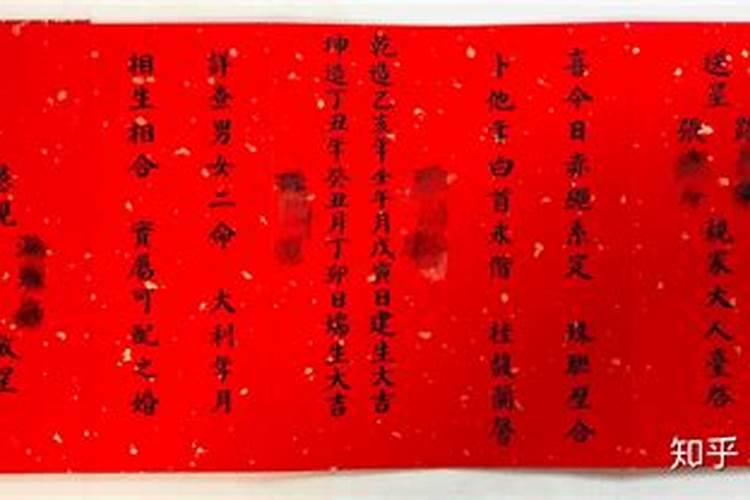 送呈 親家大人臺啓
張
喜今日赤繩系定 珠聯璧合
卜他年白首永偕 桂馥蘭馨
乾造乙亥年壬午月戊寅日建生大吉
坤造丁丑年癸丑月丁卯日生大吉
詳查男女二命 大利年月
相生相合 實屬可配之婚
敬呈
知乎